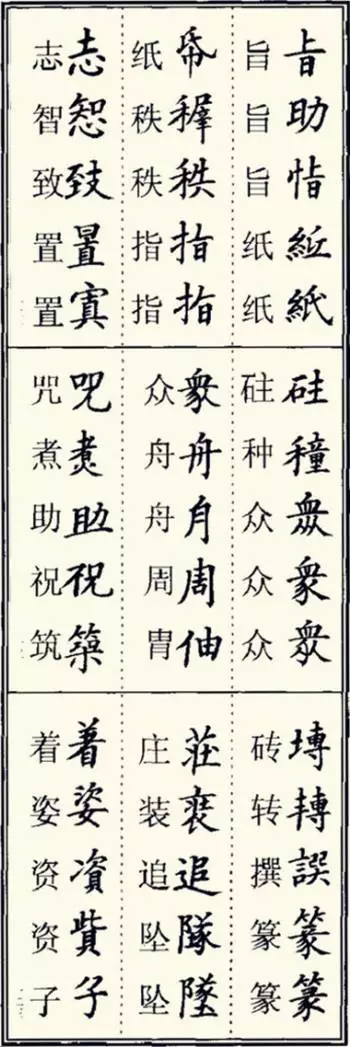 助恉紙
旨旨旨纸纸
帋秩指指
纸秩秩指指
志致置寘
志智致置置
砫種眾衆
砫种众众众
衆舟月周伷
众舟舟周冑
呪煑助祝築
咒煮助祝筑
塼轉篆篆
砖转撰篆篆
莊追隊墜
庄装追坠坠
着姿資貲子
着姿资资子